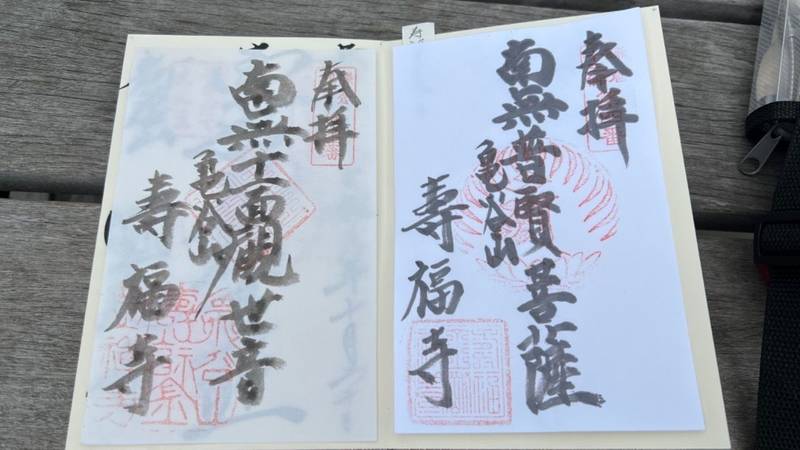 奉拝
南無普賢菩薩
亀谷山
壽福寺
奉拝
南無十一面観世音
亀谷山
壽福寺